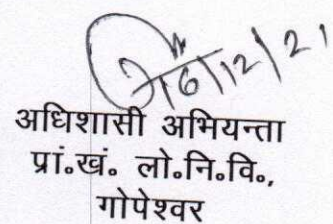 16/12/21
अधिशासी अभियन्ता
प्रां॰खं॰ लो॰नि॰वि॰,
गोपेश्वर